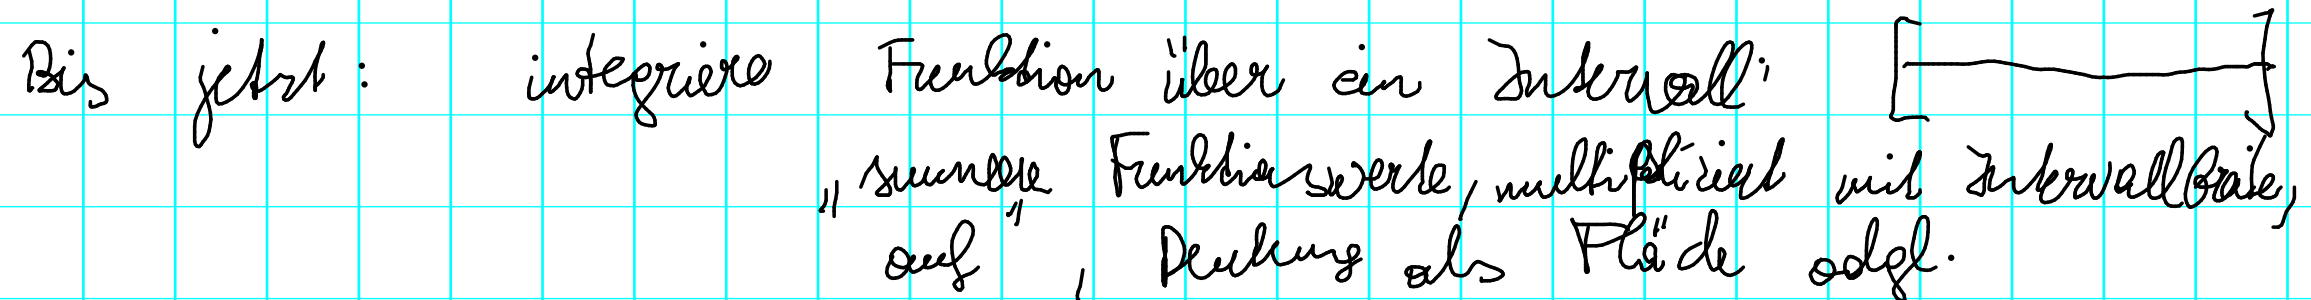 Bis jetzt: integriere Funktion über ein Intervall:
„summiere Funktionswerte, multipliziert mit Intervallbreite,
auf", Deutung als Fläche odgl.